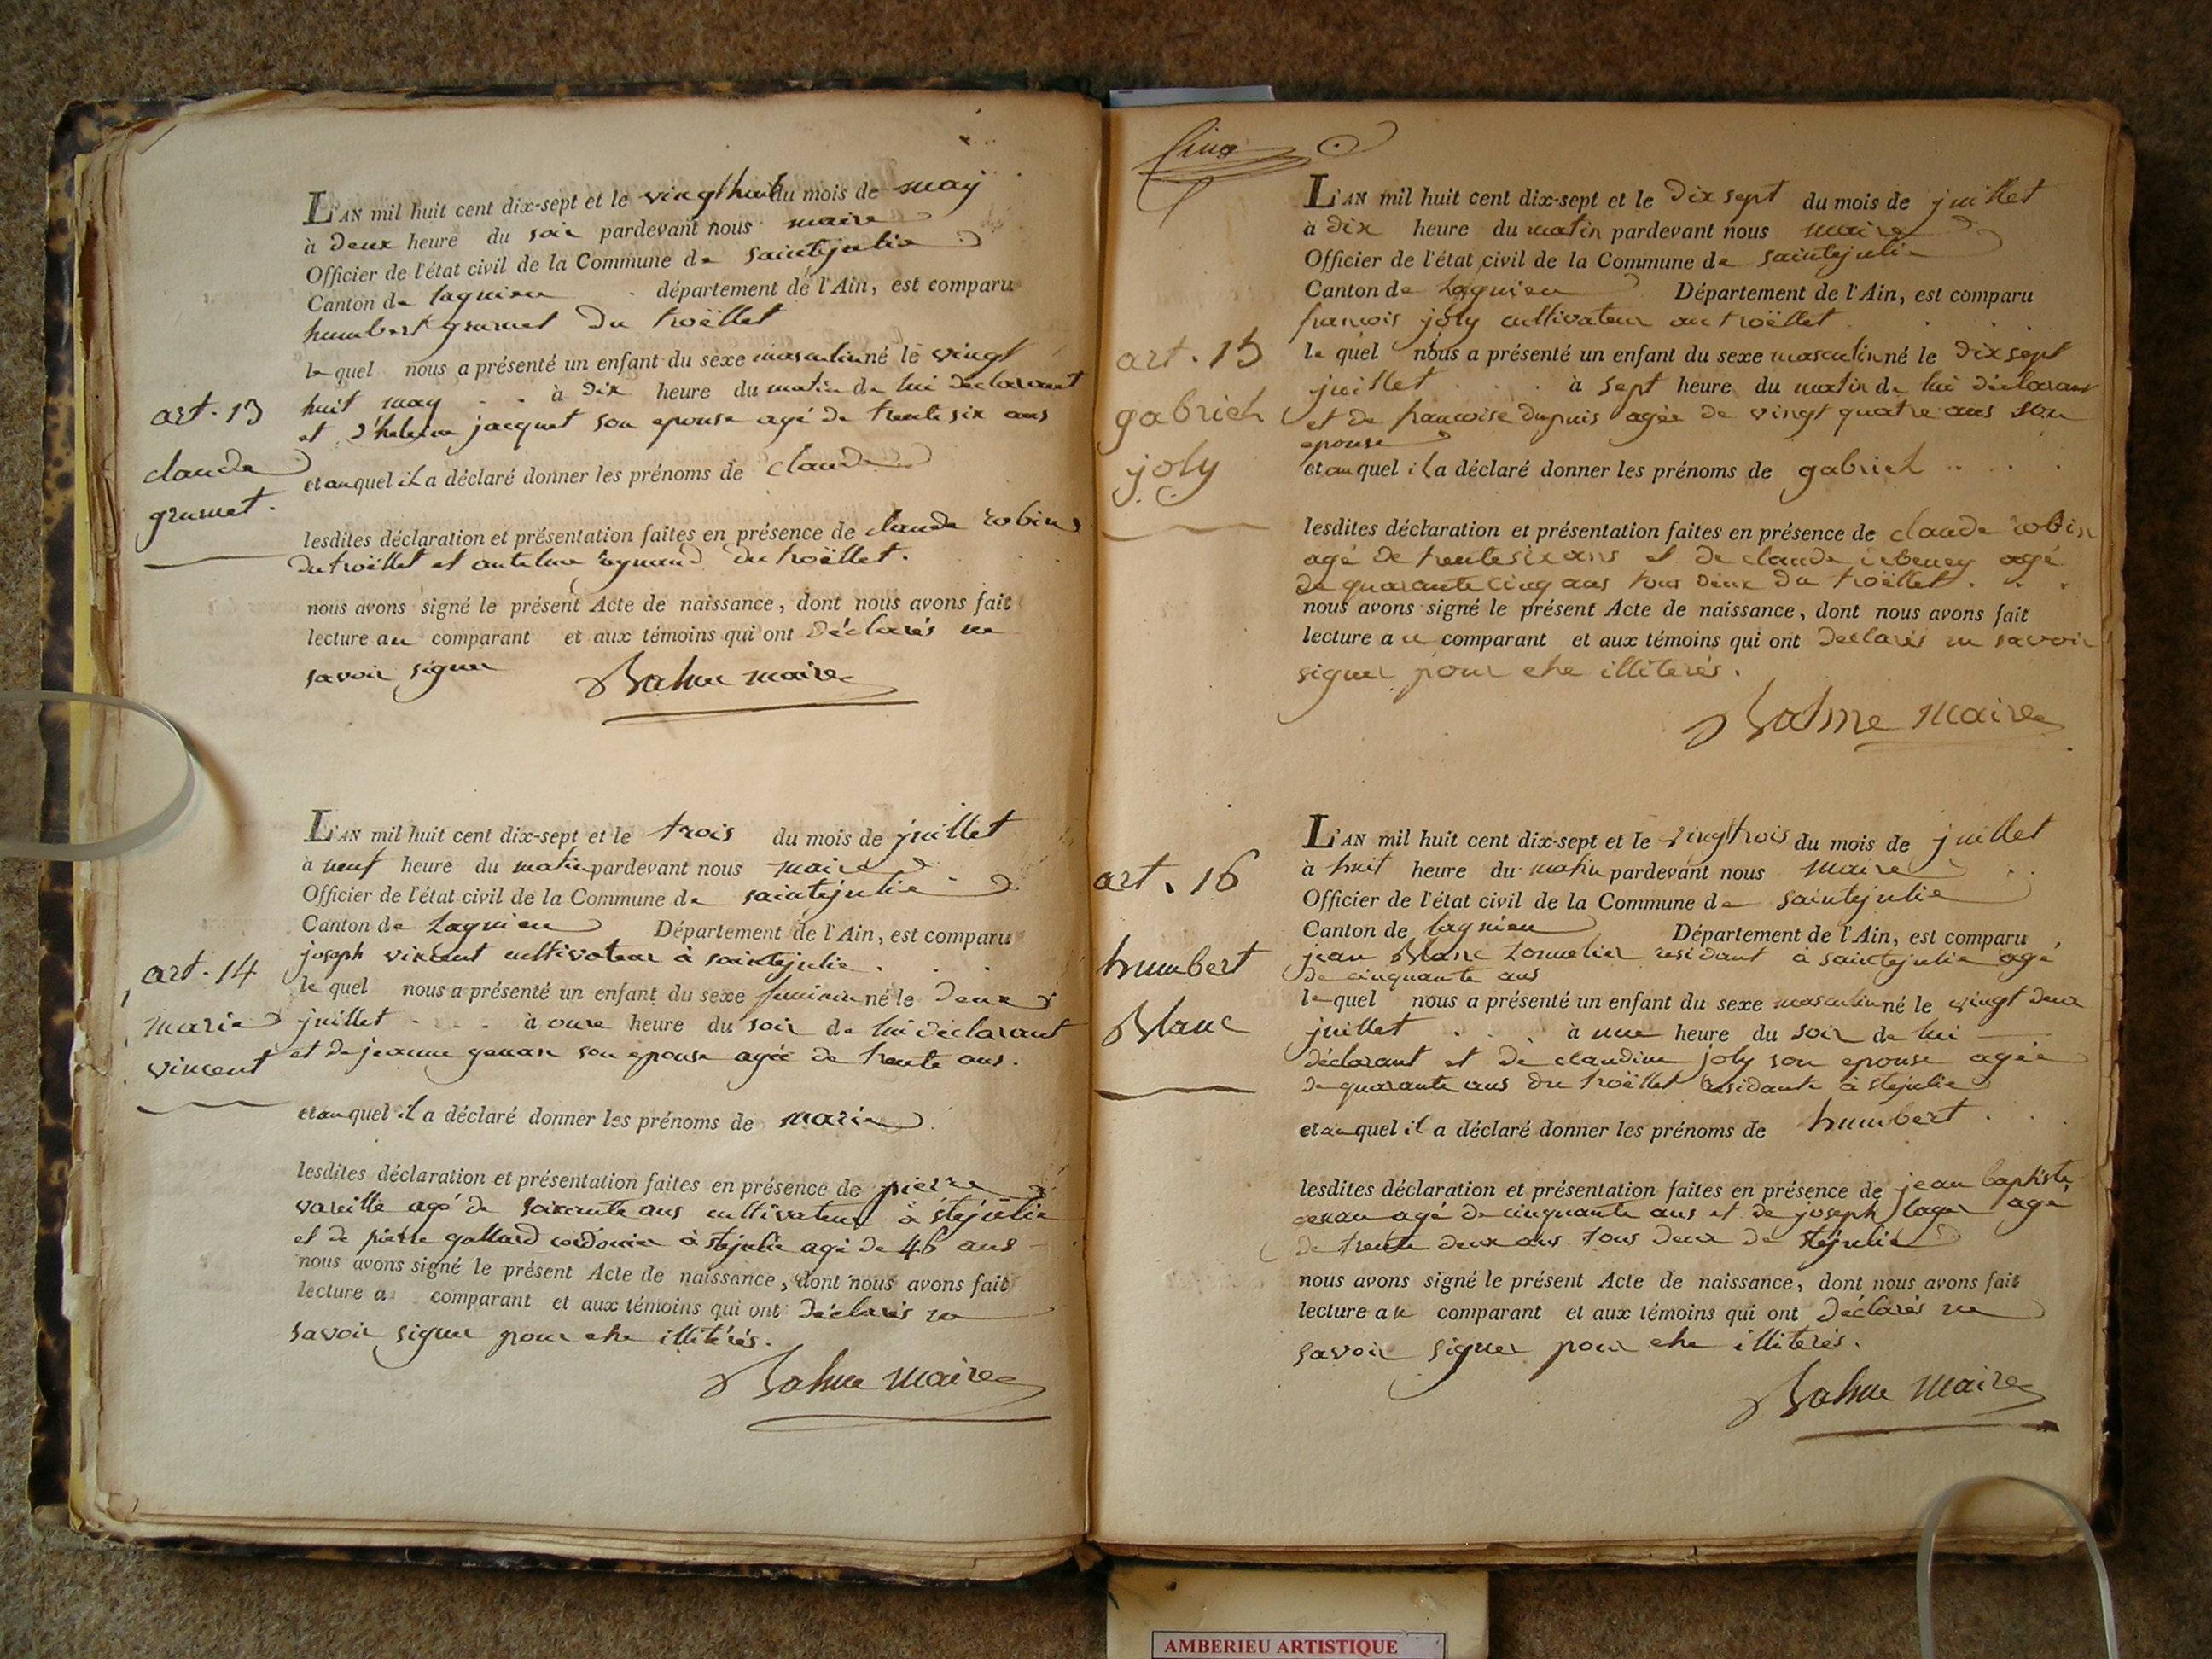 L'AN mil huit cent dix-sept et le vingthuit du mois de may
à deux heure du soir pardevant nous maire
Officier de l'état civil de la Commune de saintejulie
Canton de lagnieu département de l'Ain, est comparu
humbert grumet du troëllet
le quel nous a présenté un enfant du sexe masculin né le vingt
huit may à dix heure du matin de lui déclarant
et d'helene jacquet son epouse agé de trente six ans
art. 13
claude
grumet.
et auquel il a déclaré donner les prénoms de claude
lesdites déclaration et présentation faites en présence de claude robin
du troëllet et antelme du troëllet.
nous avons signé le présent Acte de naissance, dont nous avons fait
lecture au comparant et aux témoins qui ont déclarés ne
savoir signer maire
L'AN mil huit cent dix-sept et le trois du mois de juillet
à neuf heure du matin pardevant nous maire
Officier de l'état civil de la Commune de saintejulie
Canton de Lagnieu Département de l'Ain, est comparu
joseph vincent cultivateur à saintejulie
le quel nous a présenté un enfant du sexe feminin né le deux
juillet à onze heure du soir de lui déclarant
et de jeanne son epouse agée de trente ans.
art. 14
marie
vincent
et auquel il a déclaré donner les prénoms de marie
lesdites déclaration et présentation faites en présence de pierre
agé de soixante ans cultivateur à stejulie
et de pierre gallard cordonier à stejulie agé de 46 ans
nous avons signé le présent Acte de naissance, dont nous avons fait
lecture a comparant et aux témoins qui ont déclarés ne
savoir signer pour etre illitérés.
maire
L'AN mil huit cent dix-sept et le dix sept du mois de juillet
à dix heure du matin pardevant nous maire
Officier de l'état civil de la Commune de saintejulie
Canton de Lagnieu Département de l'Ain, est comparu
francois joly cultivateur au troëllet
le quel nous a présenté un enfant du sexe masculin né le dix sept
juillet à sept heure du matin de lui déclarant
et de francoise dupuis agée de vingt quatre ans son
epouse
art. 15
gabriel
joly
et auquel il a déclaré donner les prénoms de gabriel
lesdites déclaration et présentation faites en présence de claude robin
agé de trente six ans et de claude agé
de quarante cinq ans tous deux du troëllet.
nous avons signé le présent Acte de naissance, dont nous avons fait
lecture au comparant et aux témoins qui ont declarés ne savoir
signer pour etre illiterés.
maire
L'AN mil huit cent dix-sept et le vingtrois du mois de juillet
à huit heure du matin pardevant nous maire
Officier de l'état civil de la Commune de saintejulie
Canton de lagnieu Département de l'Ain, est comparu
jean Blanc tonnelier residant à saintejulie agé
de cinquante ans
le quel nous a présenté un enfant du sexe masculin né le vingt deux
juillet à une heure du soir de lui
déclarant et de claudine joly son epouse agée
de quarante ans du troëllet residante à stejulie
art. 16
humbert
Blanc
et auquel il a déclaré donner les prénoms de humbert
lesdites déclaration et présentation faites en présence de jean baptiste
agé de cinquante ans et de joseph agé
de trente deux ans tous deux de stejulie
nous avons signé le présent Acte de naissance, dont nous avons fait
lecture au comparant et aux témoins qui ont déclarés ne
savoir signer pour etre illiterés.
maire
AMBERIEU ARTISTIQUE